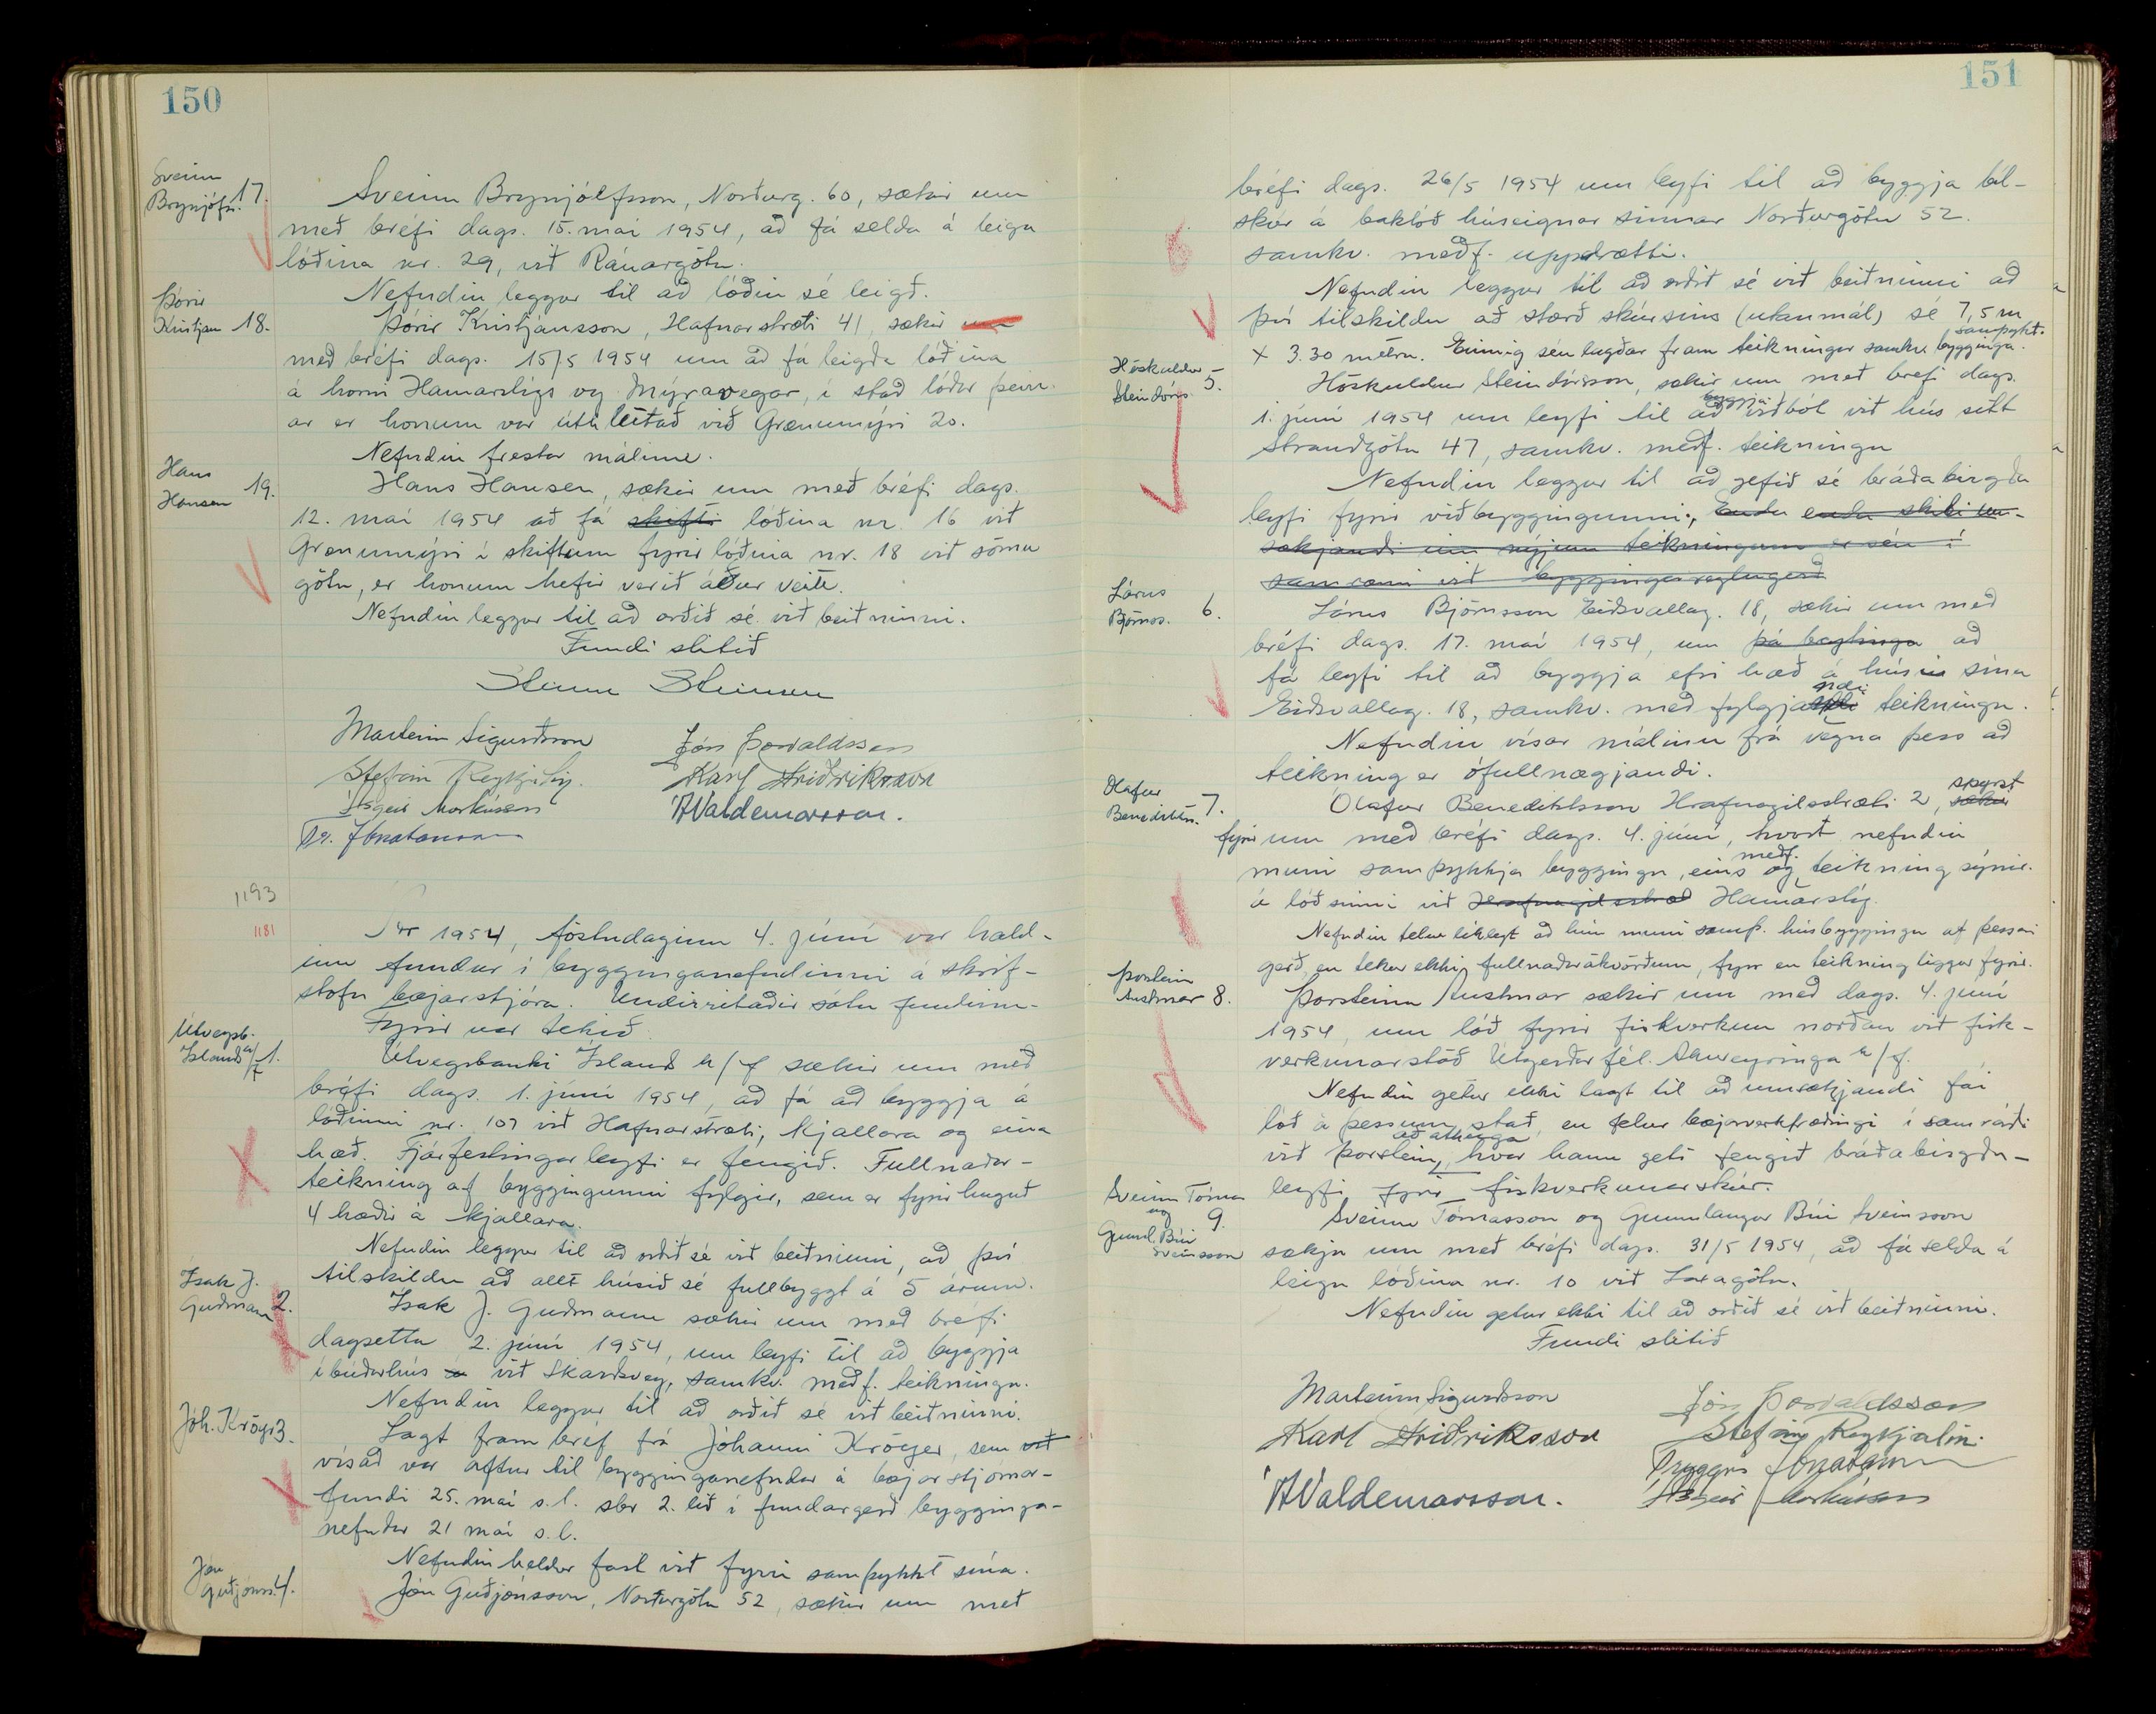 150
Sveinn
Brynjófss. 17.
Sveinn Brynjólfsson, Norðurg. 60, sækir um
með bréfi dags. 15. maí 1954, að fá selda á leigu
lóðina nr. 29, við Ránargötu.
Nefndin leggur til að lóðin sé leigð.
Þórir
Kristjan 18.
Þórir Kristjánsson, Hafnarstræti 41, sækir um
með bréfi dags. 15/5 1954 um að fá leigða lóðina
á horni Hamarstígs og Mýravegar, í stað lóðar þeirr-
ar er honum var úthlutað við Grænumýri 20.
Nefndin frestar málinu.
Hans
Hansen 19.
Hans Hansen, sækir um með bréfi dags.
12. maí 1954 að fá skifti lóðina nr. 16 við
Grænumýri í skiftum fyrir lóðina nr. 18 við sömu
götu, er honum hefir verið áður veitt.
Nefndin leggur til að orðið sé við beiðninni.
Fundi slitið
Steinn Steinsen
Marteinn Sigurðsson
Jón Þorvaldsson
Stefán Reykjalín.
Karl Friðriksson
Ásgeir Markússon
ÁValdemarsson.
Tr. Jónatansson
1193
1181
Ár 1954, föstudaginn 4. júní var hald-
inn fundur í bygginganefndinni á skrif-
stofu bæjarstjóra. Undirritaðir sátu fundinn.
Fyrir var tekið.
Útvegsb.
Íslands h/f 1.
Útvegsbanki Íslands h/f sækir um með
bréfi dags. 1. júní 1954, að fá að byggja á
lóðinni nr. 107 við Hafnarstræti, kjallara og eina
hæð. Fjárfestingarleyfi er fengið. Fullnaðar-
teikning af byggingunni fylgir, sem er fyrirhuguð
4 hæðir á kjallara.
Nefndin leggur til að orðið sé við beiðninni, að því
tilskildu að allt húsið sé fullbyggt á 5 árum.
Ísak J.
Guðmann 2.
Ísak J. Guðmann sækir um með bréfi
dagsettu 2. júní 1954, um leyfi til að byggja
íbúðarhús við Skarðsveg, samkv. meðf. teikningu.
Nefndin leggur til að orðið sé við beiðninni.
Jóh. Kröyer 3.
Lagt fram bréf frá Jóhanni Kröyer, sem við
vísað var aftur til bygginganefndar á bæjarstjórnar-
fundi 25. maí s.l. sbr 2. lið í fundargerð bygginga-
nefndar 21 maí s.l.
Nefndin heldur fast við fyrri samþykkt sína.
Jón
Guðjónss. 4.
Jón Guðjónsson, Norðurgötu 52, sækir um með
151
bréfi dags. 26/5 1954 um leyfi til að byggja bíl-
skúr á baklóð húseignar sinnar Norðurgötu 52.
samkv. meðf. uppdrætti.
Nefndin leggur til að orðið sé við beiðninni að
því tilskildu að stærð skúrsins (utanmál) sé 7,5 m
x 3.30 metra. Einnig séu lagðar fram teikningar samkv. bygginga-
samþykt.
Höskuldur
Steindórs. 5.
Höskuldur Steindórsson, sækir um með bréfi dags.
1. júní 1954 um leyfi til að byggja viðból við hús sitt
Strandgötu 47, samkv. meðf. teikningu
Nefndin leggur til að gefið sé bráðabirgða
leyfi fyrir viðbyggingunni, Enda enda skili um-
sækjandi inn nýjum teikningum er séu í
samræmi við byggingareglugerð
Lárus
Björnss. 6.
Lárus Björnsson Eiðsvallag. 18, sækir um með
bréfi dags. 17. maí 1954, um að
fá leyfi til að byggja efri hæð á húsið sína
Eiðsvallag. 18, samkv. með fylgjandi teikningu.
Nefndin vísar málinu frá vegna þess að
teikning er ófullnægjandi.
Ólafur
Benediktss. 7.
Ólafur Benediktsson Hrafnagilsstræti 2, sækir spyrst
fyrir um með bréfi dags. 4. júní, hvort nefndin
muni samþykkja byggingu eins og meðf. teikning sýnir.
á lóð sinni við Hrafnagilsstræti Hamarstíg.
Nefndin telur líklegt að hún muni samþ. húsbyggingu af þessari
gerð, en tekur ekki fullnaðarákvörðun, fyrr en teikning liggur fyrir.
Þorsteinn
Austmar 8.
Þorsteinn Austmar sækir um með dags. 4. júní
1954, um lóð fyrir fiskverkun norðan við fisk-
verkunarstöð Útgerðarfél. Akureyringa h/f.
Nefndin getur ekki lagt til að umsækjandi fái
lóð á þessum stað, en felur bæjarverkfræðingi í samráði
við Þorstein, að athuga hvar hann geti fengið bráðabirgða-
leyfi fyrir fiskverkunarskúr.
Sveinn Tómas
og 9.
Gunnl. Búi
Sveinsson
Sveinn Tómasson og Gunnlaugur Búi Sveinsson
sækja um með bréfi dags. 31/5 1954, að fá selda á
leigu lóðina nr. 10 við Laxagötu.
Nefndin getur ekki til að orðið sé við beiðninni.
Fundi slitið
Marteinn Sigurðsson
Jón Þorvaldsson
Karl Friðriksson
Stefán Reykjalín.
Tryggvi Jónatansson
ÁValdemarsson.
Ásgeir Markússon